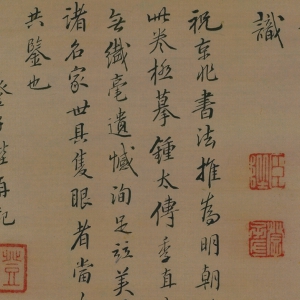 識
祝京兆書法推為明朝
此卷極摹鍾太傅季直
無纖毫遺憾洵足玆美
諸名家世具隻眼者當
共鑒也
再記